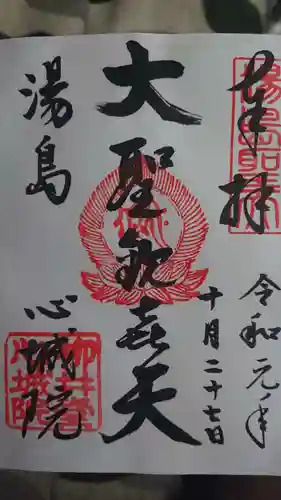 奉拝
令和元年
十月二十七日
大聖歓喜天
湯島
心城院